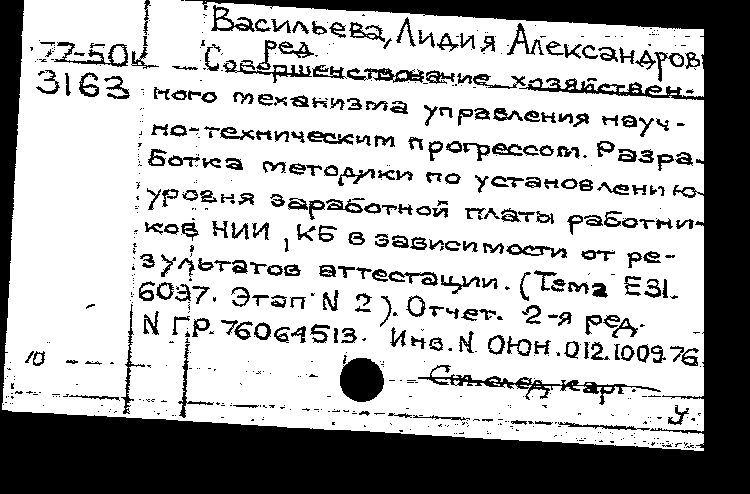 Васильева, Лидия Александров
ред.
77-50к Совершенствование хозяйствен-
3163 ного механизма управления науч-
но-техническим прогрессом. Разра-
ботка методики по установлению
уровня заработной платы работни-
ков НИИ, КБ в зависимости от ре-
зультатов аттестации. (Тема Е31.
6097. Этап N 2). Отчет. 2-я ред.
N Г.Р. 76064513. Инв. N ОЮН.012.1009.76
10
См. след. карт.
У.